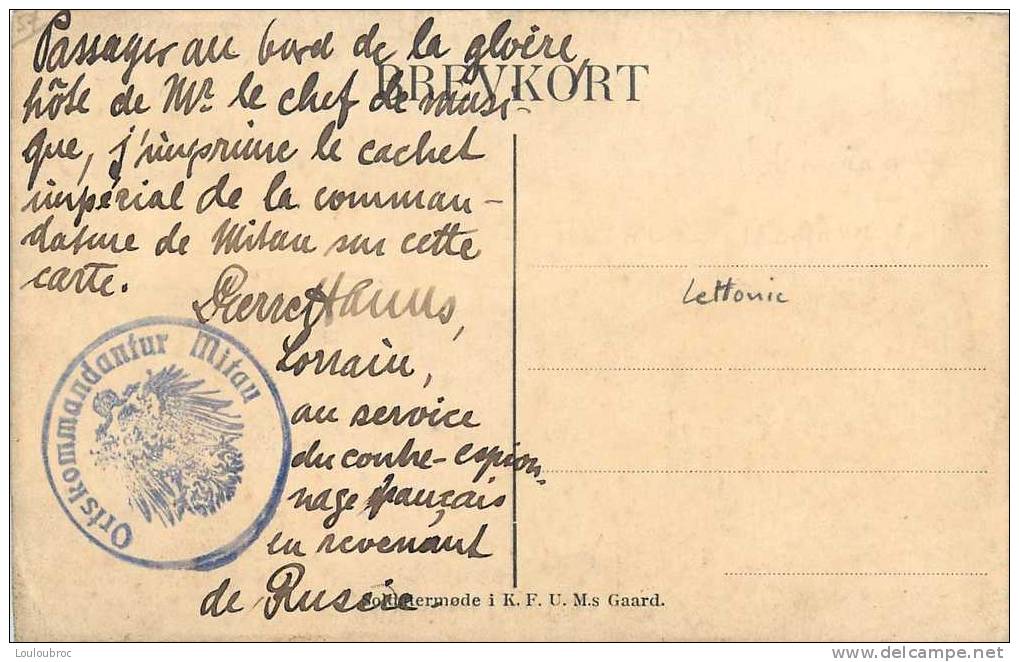 Passager au bord de la gloire,
BREVKORT
hôte de Mr. le chef de musi-
que, j'imprime le cachet
impérial de la comman-
dature de Mitau sur cette
carte.
Pierre
Lorrain,
au service
du contre-espion-
nage français
en revenant
de Russie.
Ortskommandantur Mitau
Lettonie
Soldatermøde i K. F. U. M.s Gaard.
© Louloubroc
www.delcampe.net